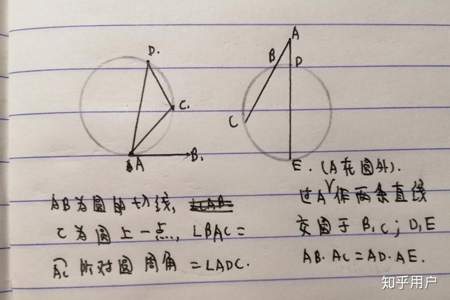 D.
C.
A
B.
A
B
D
C
E. (A在圆外).
AB为圆的切线,
C为圆上一点, ∠BAC=
AC所对圆周角=∠ADC.
过A作两条直线
交圆于B,C; D,E
AB·AC=AD·AE.
知乎用户